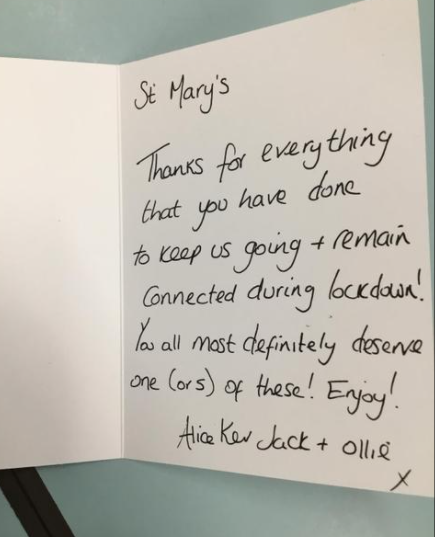 St Mary's
Thanks for everything
that you have done
to keep us going + remain
connected during lockdown!
You all most definitely deserve
one (or 5) of these! Enjoy!
Alice Kev Jack + Ollie
x